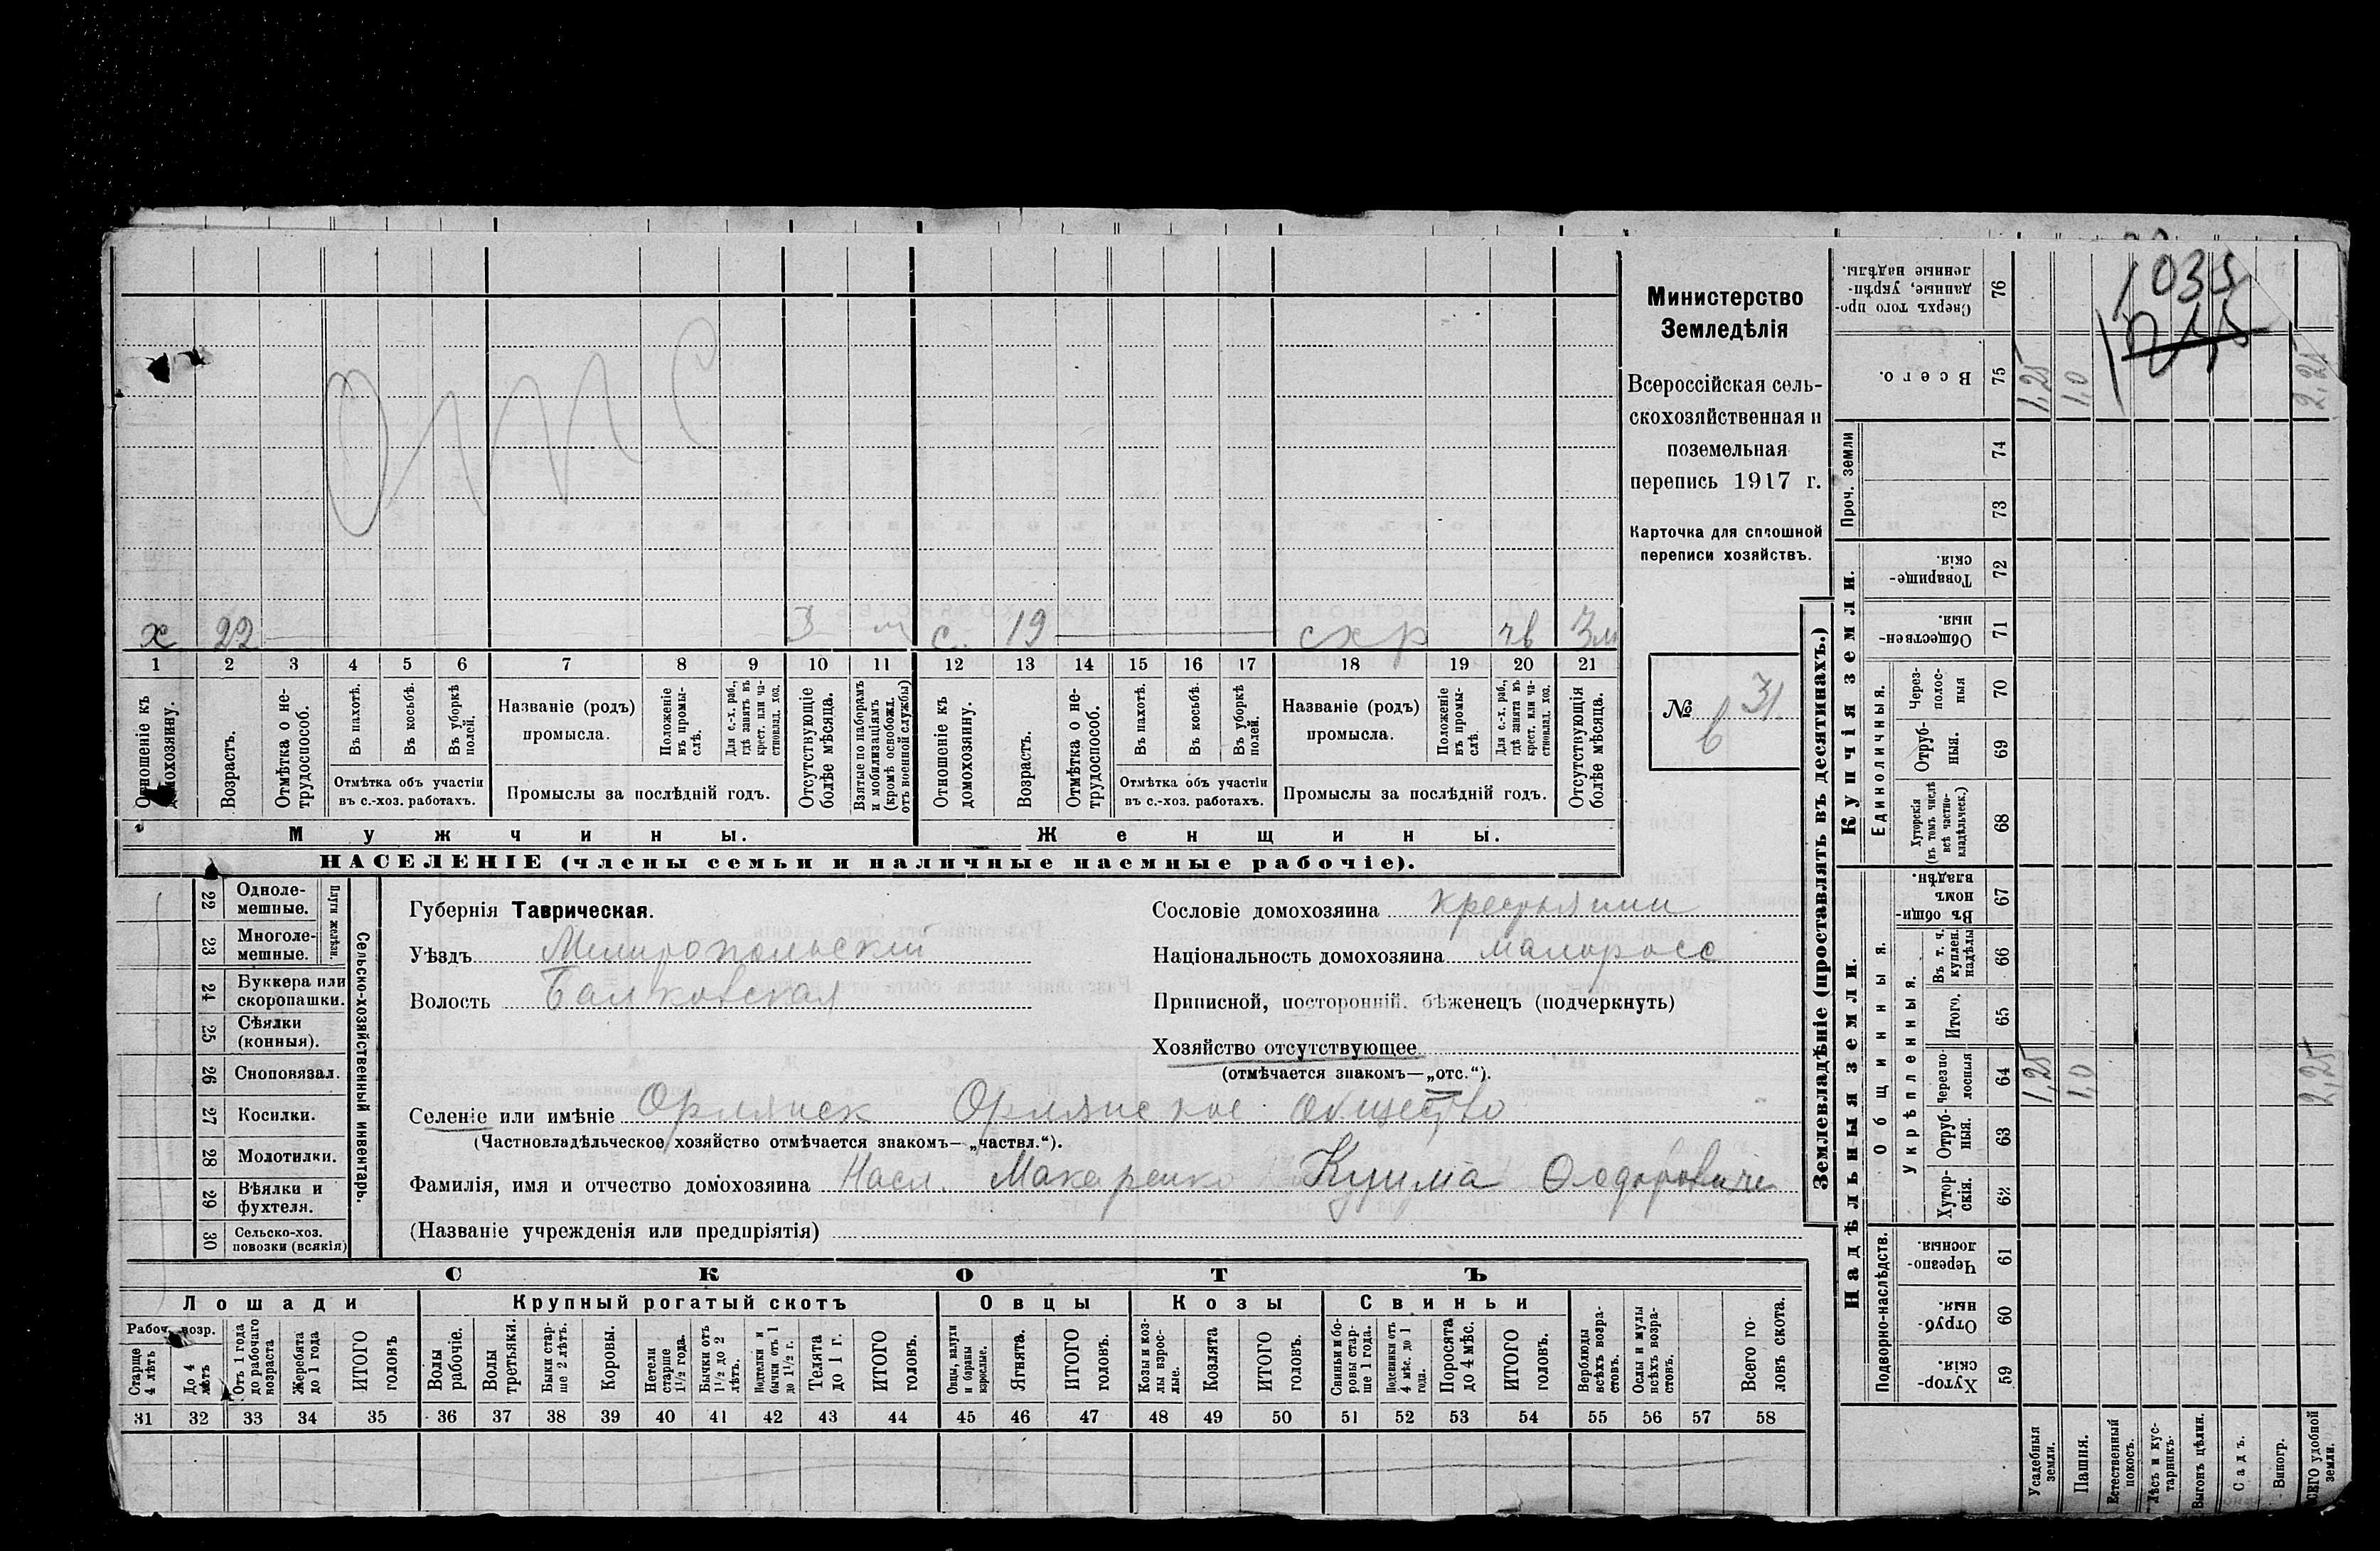 х 22 3 м с. 19 схр чв 3м
1 2 3 4 5 6 7 8 9 10 11 12 13 14 15 16 17 18 19 20 21
Отношеніе къ домохозяину.
Возрастъ.
Отмѣтка о не-трудоспособ.
Въ пахотѣ.
Въ косьбѣ.
Въ уборкѣ полей.
Отмѣтка объ участіи
въ с.-хоз. работахъ.
Названіе (родъ)
промысла.
Положеніе въ промыс-лѣ.
Для с.-х. раб., гдѣ занятъ въ крест. или ча-стновлад. хоз.
Промыслы за послѣдній годъ.
Отсутствующіе болѣе мѣсяца.
Взятые по наборамъ и мобилизаціямъ (кромѣ освобожд. отъ военной службы)
Отношеніе къ домохозяину.
Возрастъ.
Отмѣтка о не-трудоспособ.
Въ пахотѣ.
Въ косьбѣ.
Въ уборкѣ полей.
Отмѣтка объ участіи
въ с.-хоз. работахъ.
Названіе (родъ)
промысла.
Положеніе въ промы-слѣ.
Для с.-х. раб., гдѣ занята въ крест. или ча-стновлад. хоз.
Промыслы за послѣдній годъ.
Отсутствующія болѣе мѣсяца.
Мужчины. Женщины.
НАСЕЛЕНІЕ (члены семьи и наличные наемные рабочіе).
Министерство
Земледѣлія
Всероссійская сель-
скохозяйственная и
поземельная
перепись 1917 г.
Карточка для сплошной
переписи хозяйствъ.
№ 31
6
22 Одноле-мешные.
23 Многоле-мешные.
Плуги желѣзн.
24 Буккера или скоропашки.
25 Сѣялки (конныя).
26 Сноповязал.
27 Косилки.
28 Молотилки.
29 Вѣялки и фухтеля.
30 Сельско-хоз. повозки (всякія)
Сельско-хозяйственный инвентарь.
Губернія Таврическая.
Уѣздъ Мелитопольскій
Волость Балковская
Сословіе домохозяина крестьянин
Національность домохозяина малоросс
Приписной, посторонній, бѣженецъ (подчеркнуть)
Хозяйство отсутствующее
(отмѣчается знакомъ—„отс.“).
Селеніе или имѣніе Орлянск Орлянское общество
(Частновладѣльческое хозяйство отмѣчается знакомъ— „частвл.“).
Фамилія, имя и отчество домохозяина Насл. Макаренко Кузима Федорович
(Названіе учрежденія или предпріятія)
СКОТЪ
Лошади Крупный рогатый скотъ Овцы Козы Свиньи
Рабоч. возр.
Старше 4 лѣтъ
До 4 лѣтъ
Отъ 1 года до рабочаго возраста
Жеребята до 1 года
ИТОГО головъ
Волы рабочіе.
Волы третьяки.
Быки стар-ше 2 лѣтъ.
Коровы.
Нетели старше 1 1/2 года.
Бычки отъ 1 1/2 до 2 лѣтъ.
Подтелки и бычки отъ 1 до 1 1/2 г.
Телята до 1 г.
ИТОГО головъ.
Овцы, валухи и бараны взрослые.
Ягнята.
ИТОГО головъ.
Козы и коз-лы взрос-лые.
Козлята
ИТОГО головъ.
Свиньи и бо-ровы стар-ше 1 года.
Подсвинки отъ 4 мѣс. до 1 года.
Поросята до 4 мѣс.
ИТОГО головъ.
Верблюды всѣхъ возра-стовъ.
Ослы и мулы всѣхъ возра-стовъ.
Всего го-ловъ скота.
31 32 33 34 35 36 37 38 39 40 41 42 43 44 45 46 47 48 49 50 51 52 53 54 55 56 57 58
Землевладѣніе (проставлять въ десятинахъ.)
1035
Сверхъ того про-данные, укрѣп-ленные надѣлы. 76
Всего. 75 1,25 1,0 2,25
Проч. земли 74
73
Купчія земли.
Товарище-скія. 72
Обществен-ныя. 71
Единоличныя.
Через-полос-ныя 70
Отруб-ныя. 69
Хуторскія (въ томъ числѣ всѣ частно-владѣльческ.) 68
Надѣльныя земли.
Общинныя.
Въ общин-номъ владѣн. 67
Укрѣпленныя.
Въ т. ч. куплен. надѣлы 66
Итого. 65
Черезпо-лосныя 64 1,25 1,0 2,25
Отруб-ныя. 63
Хутор-скія. 62
Подворно-наслѣдств.
Черезпо-лосныя. 61
Отруб-ныя. 60
Хутор-скія. 59
Усадебныя земли.
Пашня.
Естественный покосъ.
Лѣсъ и кус-тарникъ.
Выгонъ цѣлин.
Садъ.
Виногр.
ВСЕГО удобной земли.